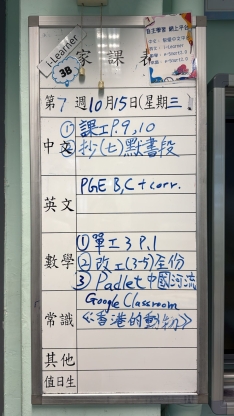 i-Learner
3B
家課表
自主學習 網上平台
第7週10月15日(星期三)
中文
① 課工P.9,10
② 抄(七)默書段
英文
PGE B,C + corr.
數學
① 單工3 P.1
② 改工(3-5)全份
3) Padlet中國河流
常識
Google Classroom
《香港的動物》
其他
值日生